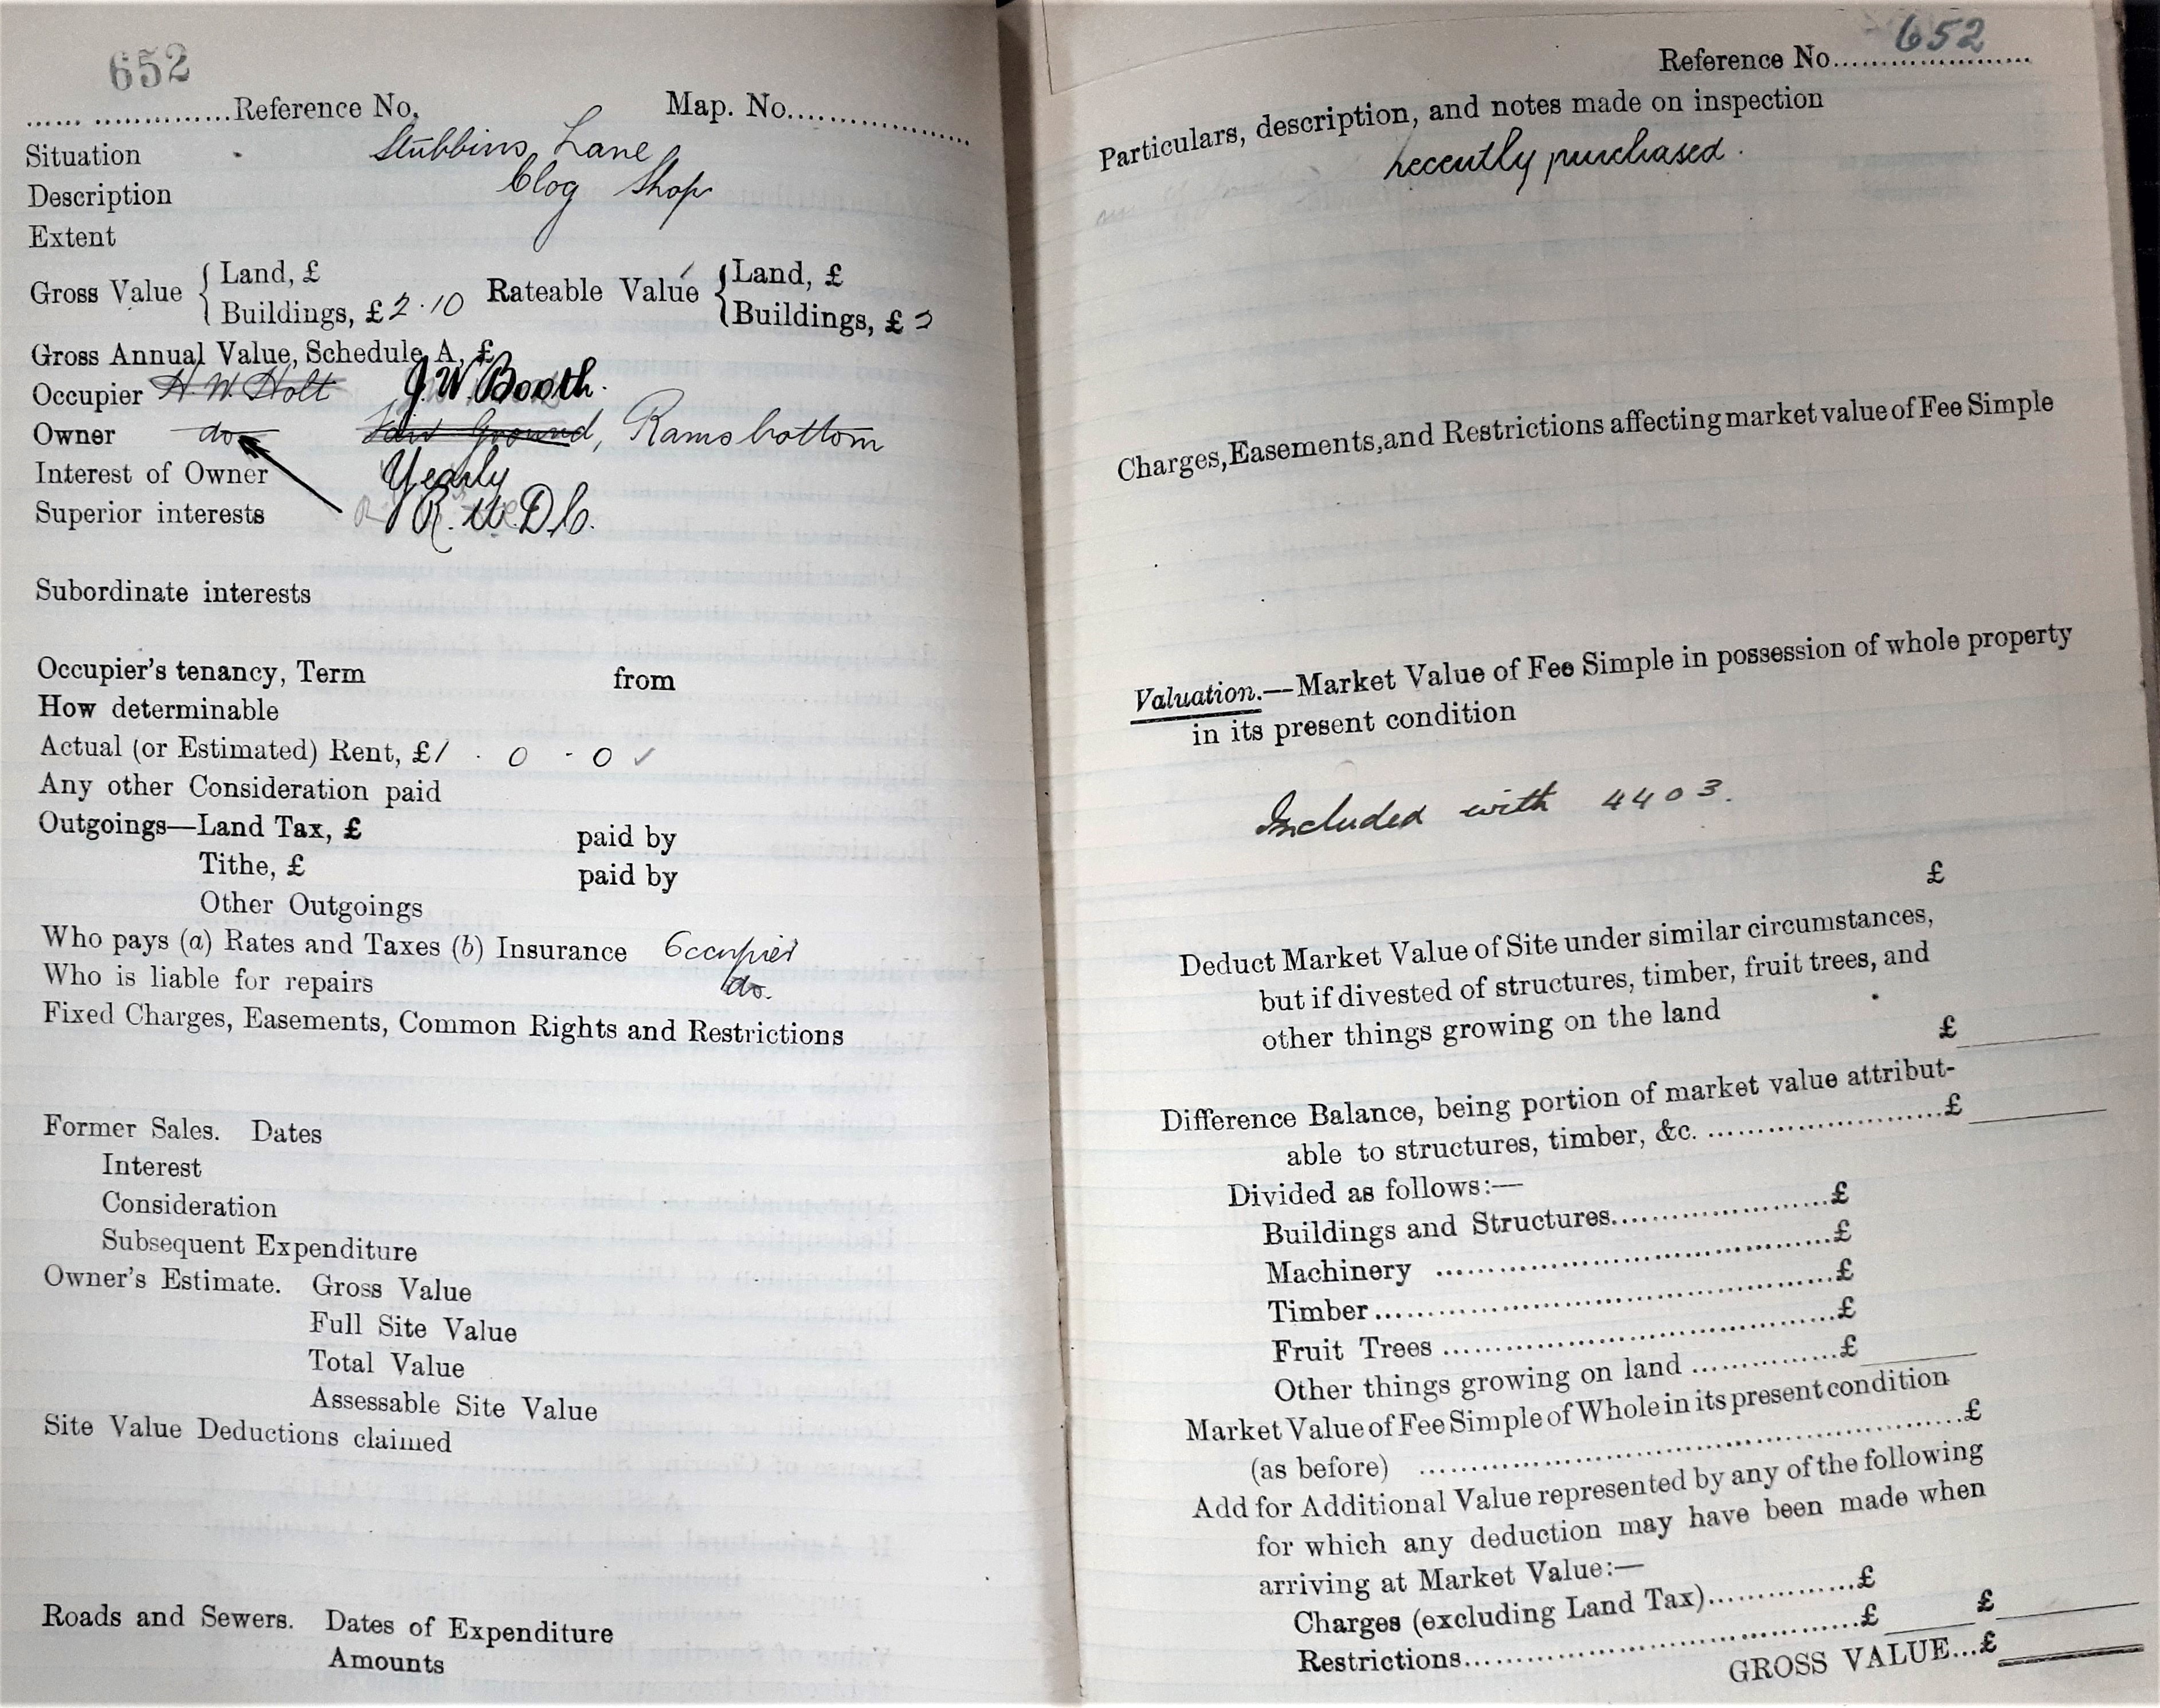 652
Reference No. Map. No.
Situation Stubbins Lane
Description Clog Shop
Extent
Gross Value { Land, £ Rateable Value { Land, £
Buildings, £ 2.10 Buildings, £ 2
Gross Annual Value, Schedule A, £
Occupier H. W. Holt J. W. Booth.
Owner do Fair Ground, Ramsbottom
Interest of Owner Yearly
Superior interests R. U. D. C.
Subordinate interests
Occupier's tenancy, Term from
How determinable
Actual (or Estimated) Rent, £1 . 0 - 0 ✓
Any other Consideration paid
Outgoings—Land Tax, £ paid by
Tithe, £ paid by
Other Outgoings
Who pays (a) Rates and Taxes (b) Insurance Occupier
Who is liable for repairs do.
Fixed Charges, Easements, Common Rights and Restrictions
Former Sales. Dates
Interest
Consideration
Subsequent Expenditure
Owner's Estimate. Gross Value
Full Site Value
Total Value
Assessable Site Value
Site Value Deductions claimed
Roads and Sewers. Dates of Expenditure
Amounts
Reference No. 652
Particulars, description, and notes made on inspection
recently purchased.
Charges, Easements, and Restrictions affecting market value of Fee Simple
Valuation.—Market Value of Fee Simple in possession of whole property
in its present condition
Included with 4403.
£
Deduct Market Value of Site under similar circumstances,
but if divested of structures, timber, fruit trees, and
other things growing on the land
£
Difference Balance, being portion of market value attribut-
able to structures, timber, &c. £
Divided as follows:—
Buildings and Structures £
Machinery £
Timber £
Fruit Trees £
Other things growing on land £
Market Value of Fee Simple of Whole in its present condition
(as before) £
Add for Additional Value represented by any of the following
for which any deduction may have been made when
arriving at Market Value:—
Charges (excluding Land Tax) £
Restrictions £ £
GROSS VALUE...£